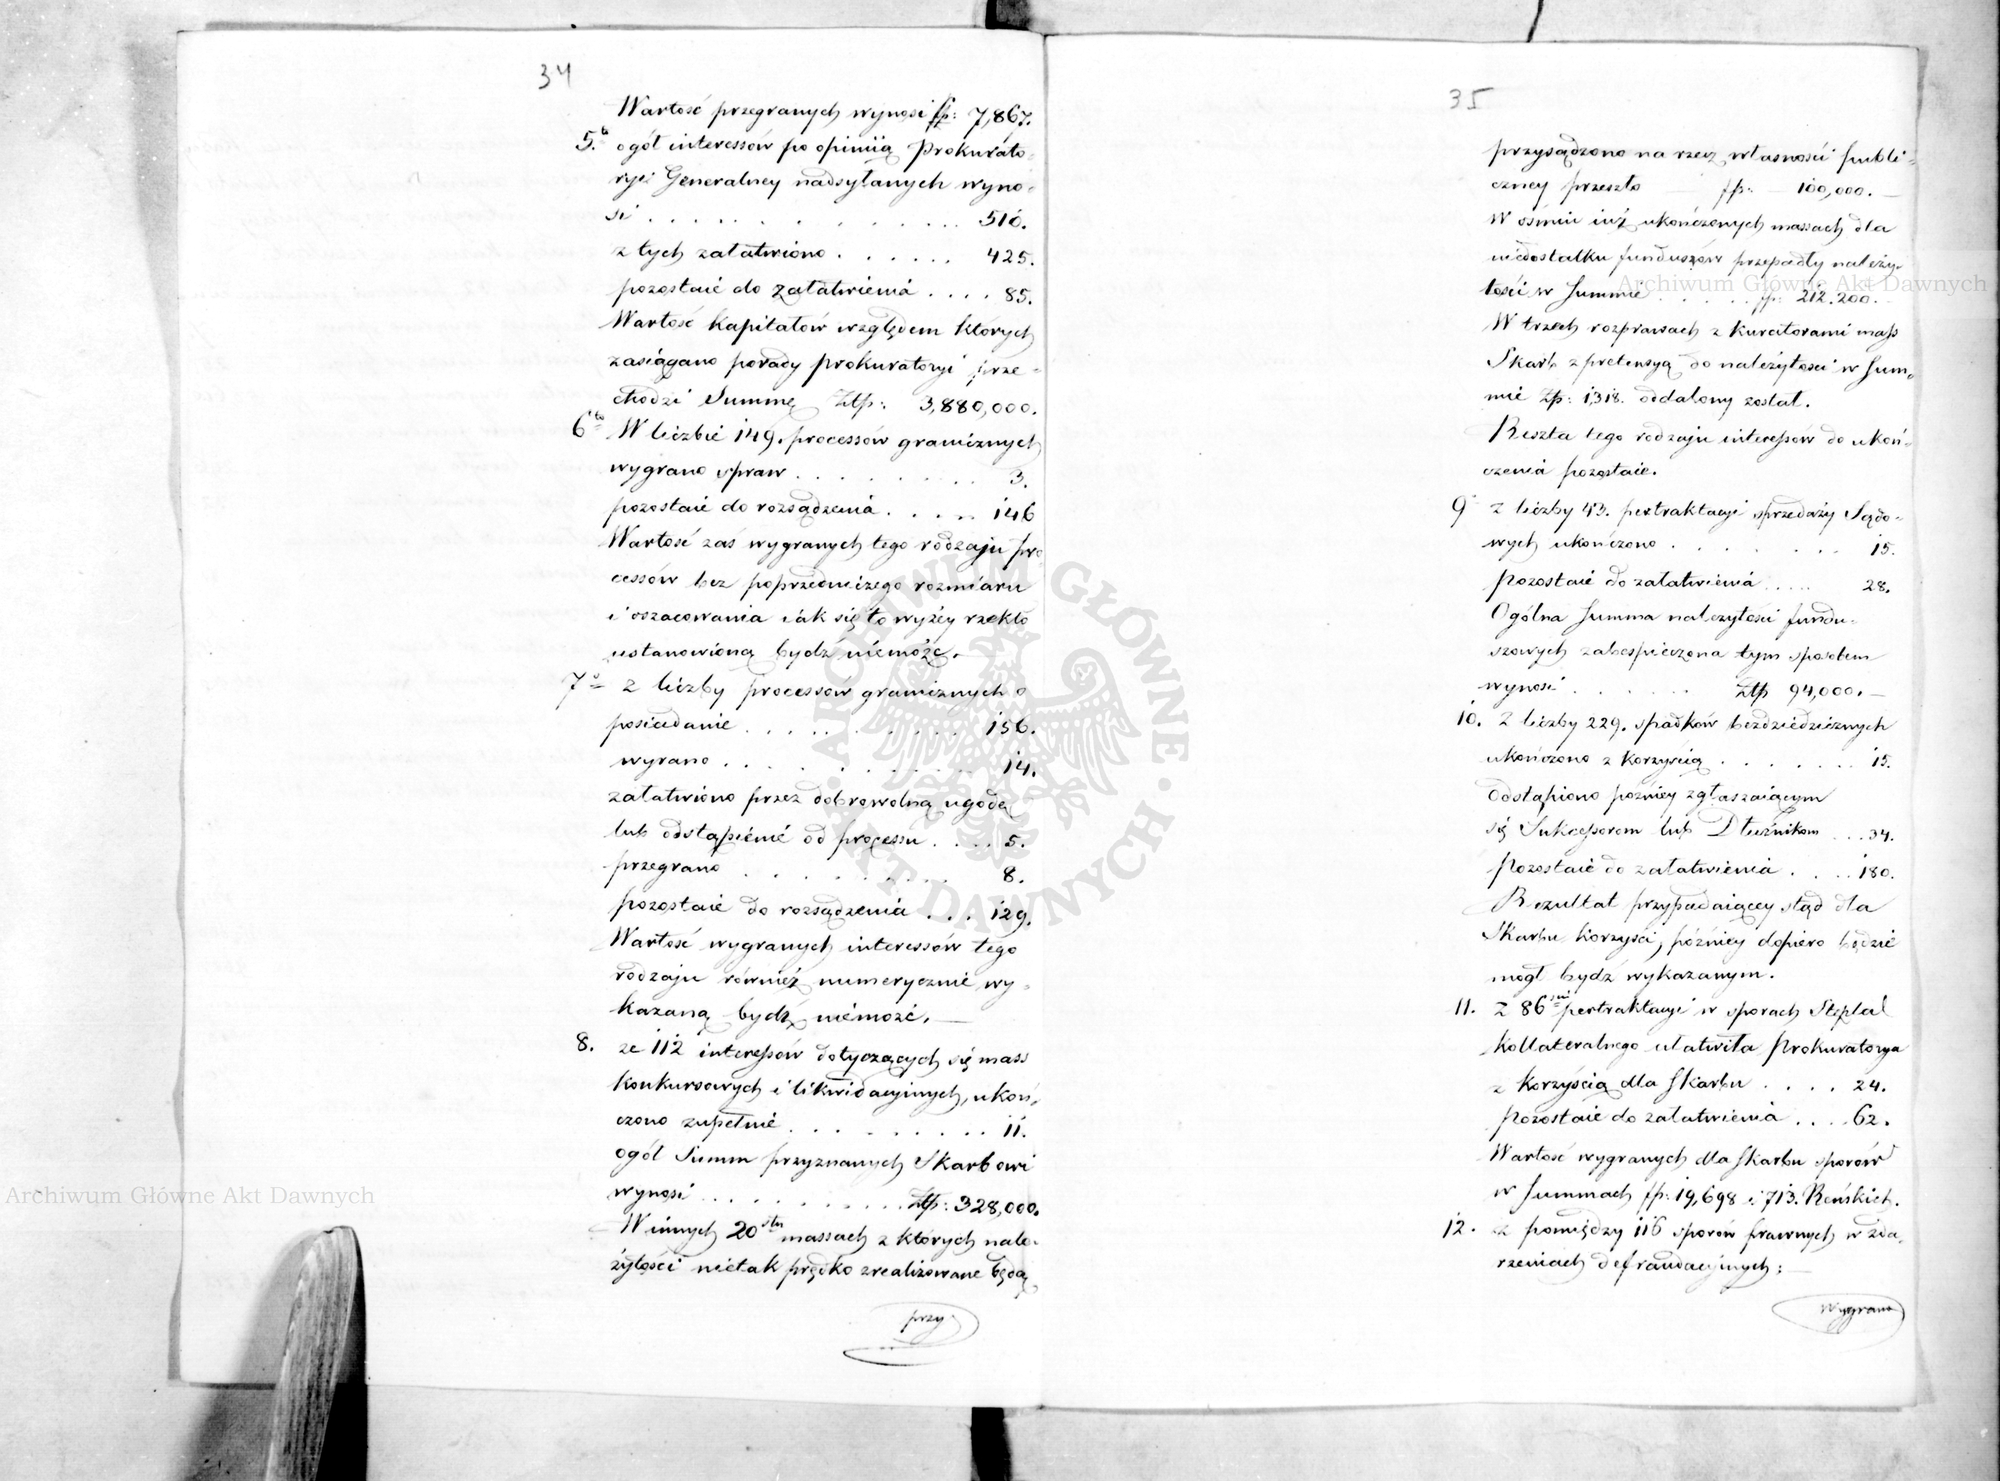 34
Wartość przegranych wynosi fp: 7,867.
5.to ogół interessów po opiniią Prokurato-
ryi Generalney nadsyłanych wyno-
si . . . . . . . . . . 510.
z tych załatwiono . . . . . . 425.
pozostaie do załatwienia . . . . 85.
Wartość kapitałów względem których
zasiągano porady prokuratoryi prze-
chodzi Summę Złp: 3,880,000.
6to W liczbie 149. processów granicznych
wygrano spraw . . . . . . . . . 3.
pozostaie do rozsądzenia . . . . 146
Wartość zaś wygranych tego rodzaju pro
cessów bez poprzedniczego rozmiaru
i oszacowania iak się to wyżey rzekło
ustanowioną bydź niemoże.
7o Z liczby processów granicznych o
posiadanie . . . . . . . . . . 156.
wyrano . . . . . . . . . . 14.
załatwiono przez dobrowolną ugodę
lub odstąpienie od processu . . . . 5.
przegrano . . . . . . . . . 8.
pozostaie do rozsądzenia . . . 129.
Wartość wygranych interessów tego
rodzaju również numerycznie wy-
kazaną bydź niemoże. —
8. ze 112 interessów dotyczących się mass
konkursowych i likwidacyinych, ukoń-
czono zupełnie . . . . . . . . . 11.
ogół Summ przyznanych Skarbowi
wynosi . . . . . . . . . Złp: 328,000.
W innych 20stu massach z których nale-
żytości nietak prędko zrealizowane będą
przy
35
przysądzono na rzecz własności publi-
czney przeszło — fp: — 100,000. —
W ośmiu iuż ukończonych massach dla
niedostatku funduszów przepadły należy-
tości w Summie . . . . . fp: 212.200.
W trzech rozprawach z kuratorami mass
Skarb z pretensyą do należytości w Sum-
mie Zp: 1,318. oddalony został.
Reszta tego rodzaju interessów do ukoń-
czenia pozostaie.
9 z liczby 43. pertraktacyi sprzedaży Sądo-
wych ukończono . . . . . . . 15.
pozostaie do załatwienia . . . . 28.
Ogólna Summa należytości fundu-
szowych zabespieczona tym sposobem
wynosi . . . . . . Złp 94,000. —
10. Z liczby 229. spadków bezdziedzicznych
ukończono z korzyścią . . . . . . . 15.
odstąpiono pózniey zgłaszaiącym
się Sukcessorom lub Dłużnikom . . . 34.
Pozostaie do załatwienia . . . . 180.
Rezultat przypadaiącey stąd dla
Skarbu korzyści, pózniey dopiero będzie
mogł bydź wykazanym.
11. Z 86ciu pertraktacyi w sporach Stępla
kollateralnego ułatwiła Prokuratorya
z korzyścią dla Skarbu . . . . 24.
Pozostaie do załatwienia . . . . 62.
Wartość wygranych dla Skarbu sporów
w Summach fp: 19,698 i 713. Reńskich.
12. z pomiędzy 116 sporów prawnych w zda-
rzeniach defraudacyinych; —
wygrano
Archiwum Główne Akt Dawnych
Archiwum Główne Akt Dawnych
ARCHIWUM GŁÓWNE AKT DAWNYCH